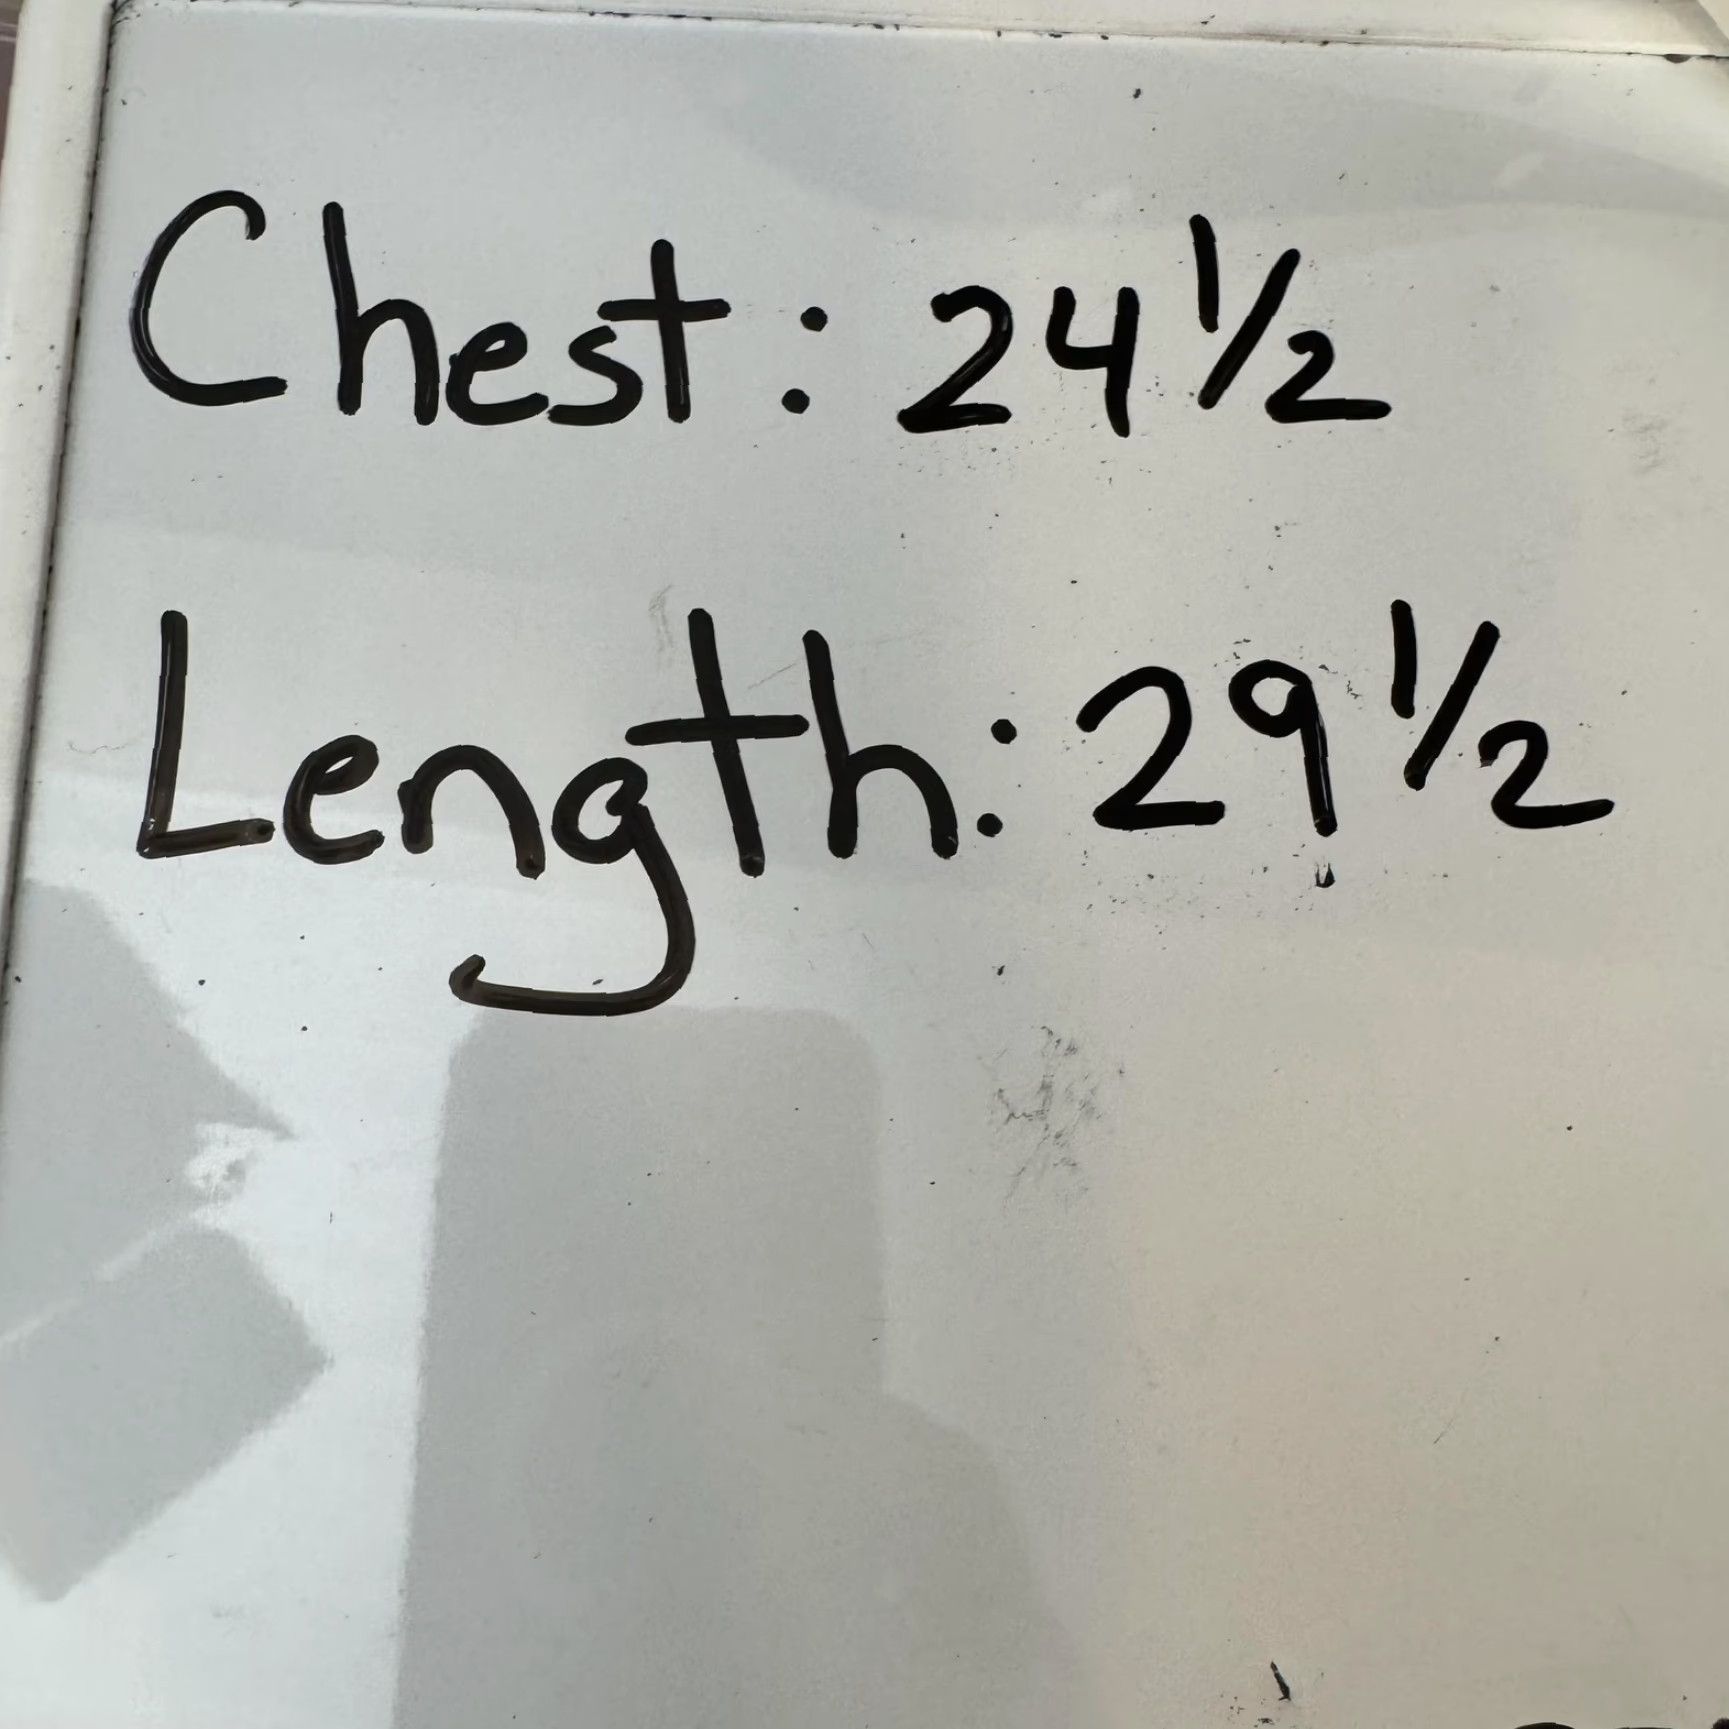 Chest: 24 1/2
Length: 29 1/2